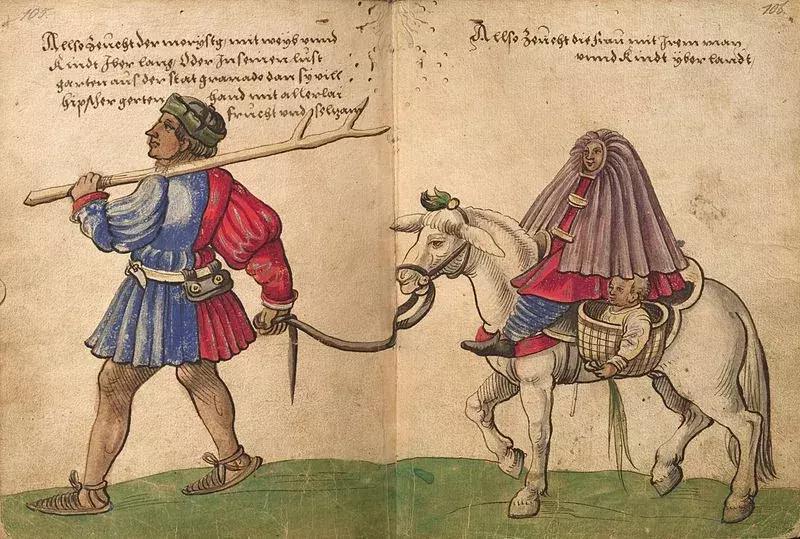 105.
Allso zeucht der morysth mit weyb unnd
Kindt Iber lang, Oder In seinen lust
garten aus der stat granado dan sy vill
hipscher gerten hand mit allerlai
frucht und selzam
106.
Allso zeucht die frau mit Irem man
unnd Kindt yber landt